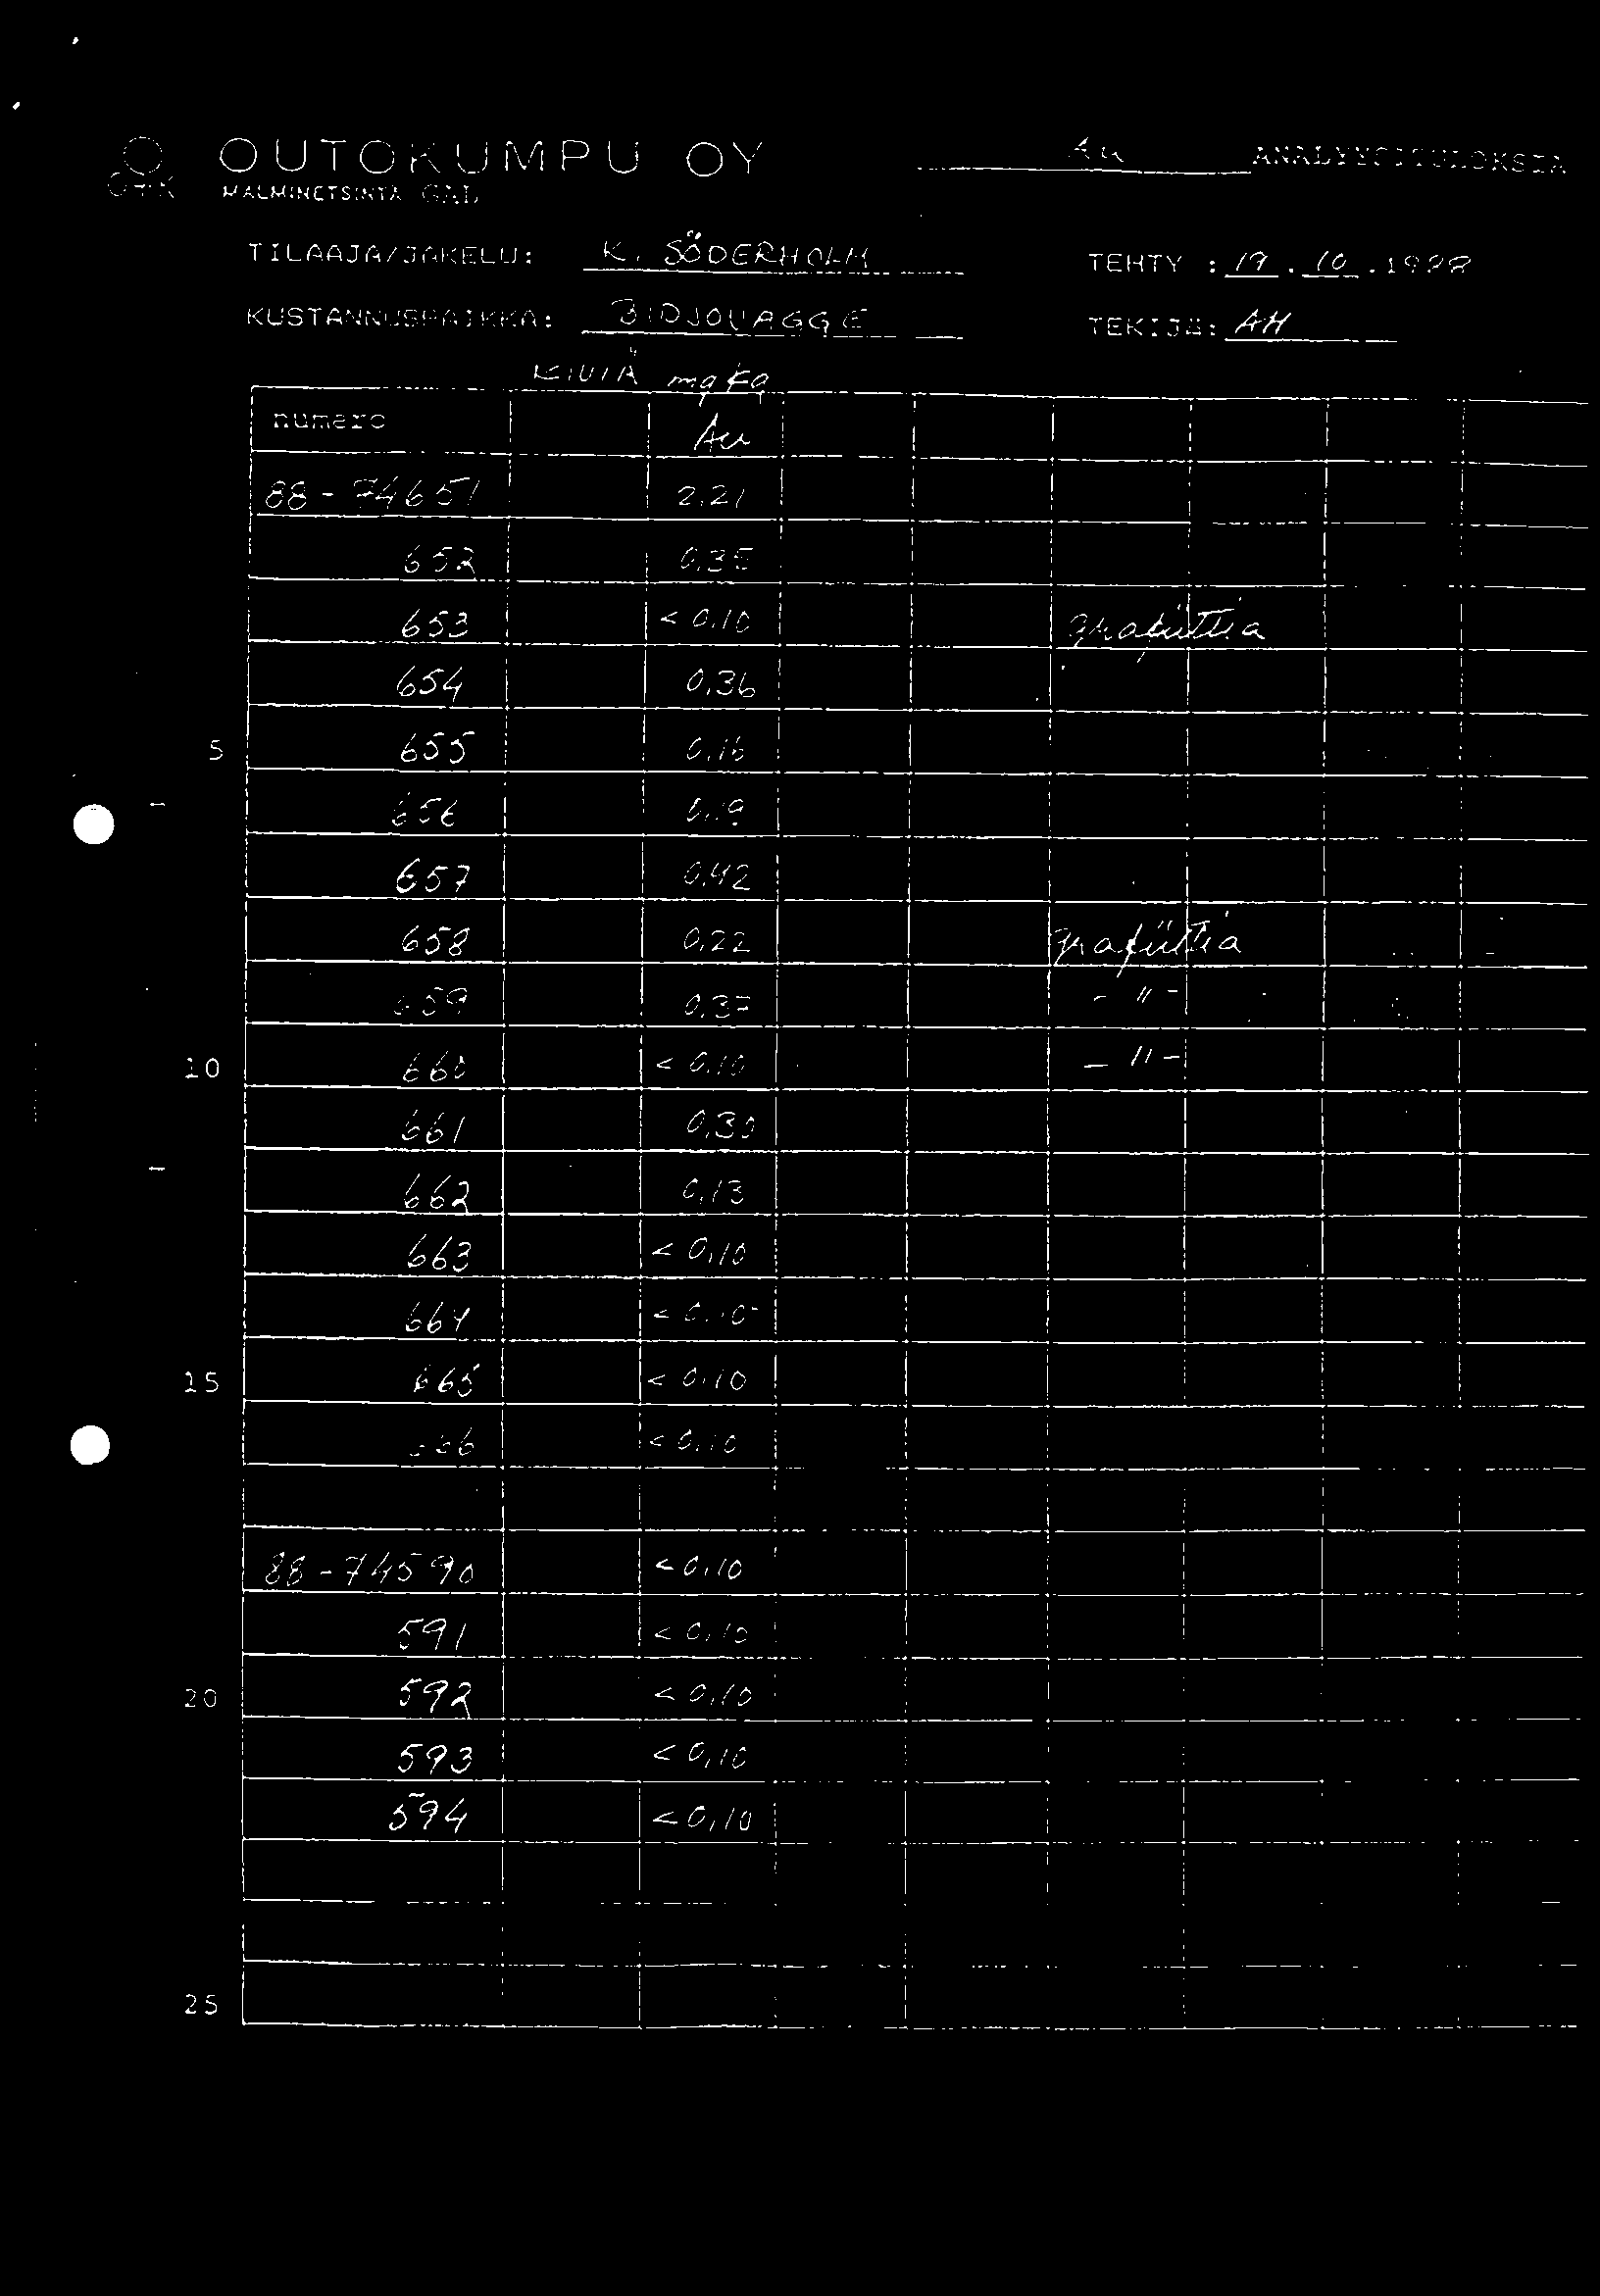 OUTOKUMPU OY Au ANALYYSITULOKSIA
OTK MALMINETSINTÄ
TILAAJA/JAKELU: K. SÖDERHOLM TEHTY : 19 . 10 . 1988
KUSTANNUSPAIKKA: BIDJOVAGGE TEKIJÄ: AH
KIVIÄ mg/kg
numero Au
88-74651 2,21
652 0,35
653 < 0,10 grafiittia
654 0,36
5 655 0,16
656 0,19
657 0,42
658 0,22 grafiittia
659 0,37 - " -
10 660 < 0,10 - " -
661 0,30
662 0,13
663 < 0,10
664 < 0,10
15 665 < 0,10
666 < 0,10
88-74590 < 0,10
591 < 0,10
20 592 < 0,10
593 < 0,10
594 < 0,10
25